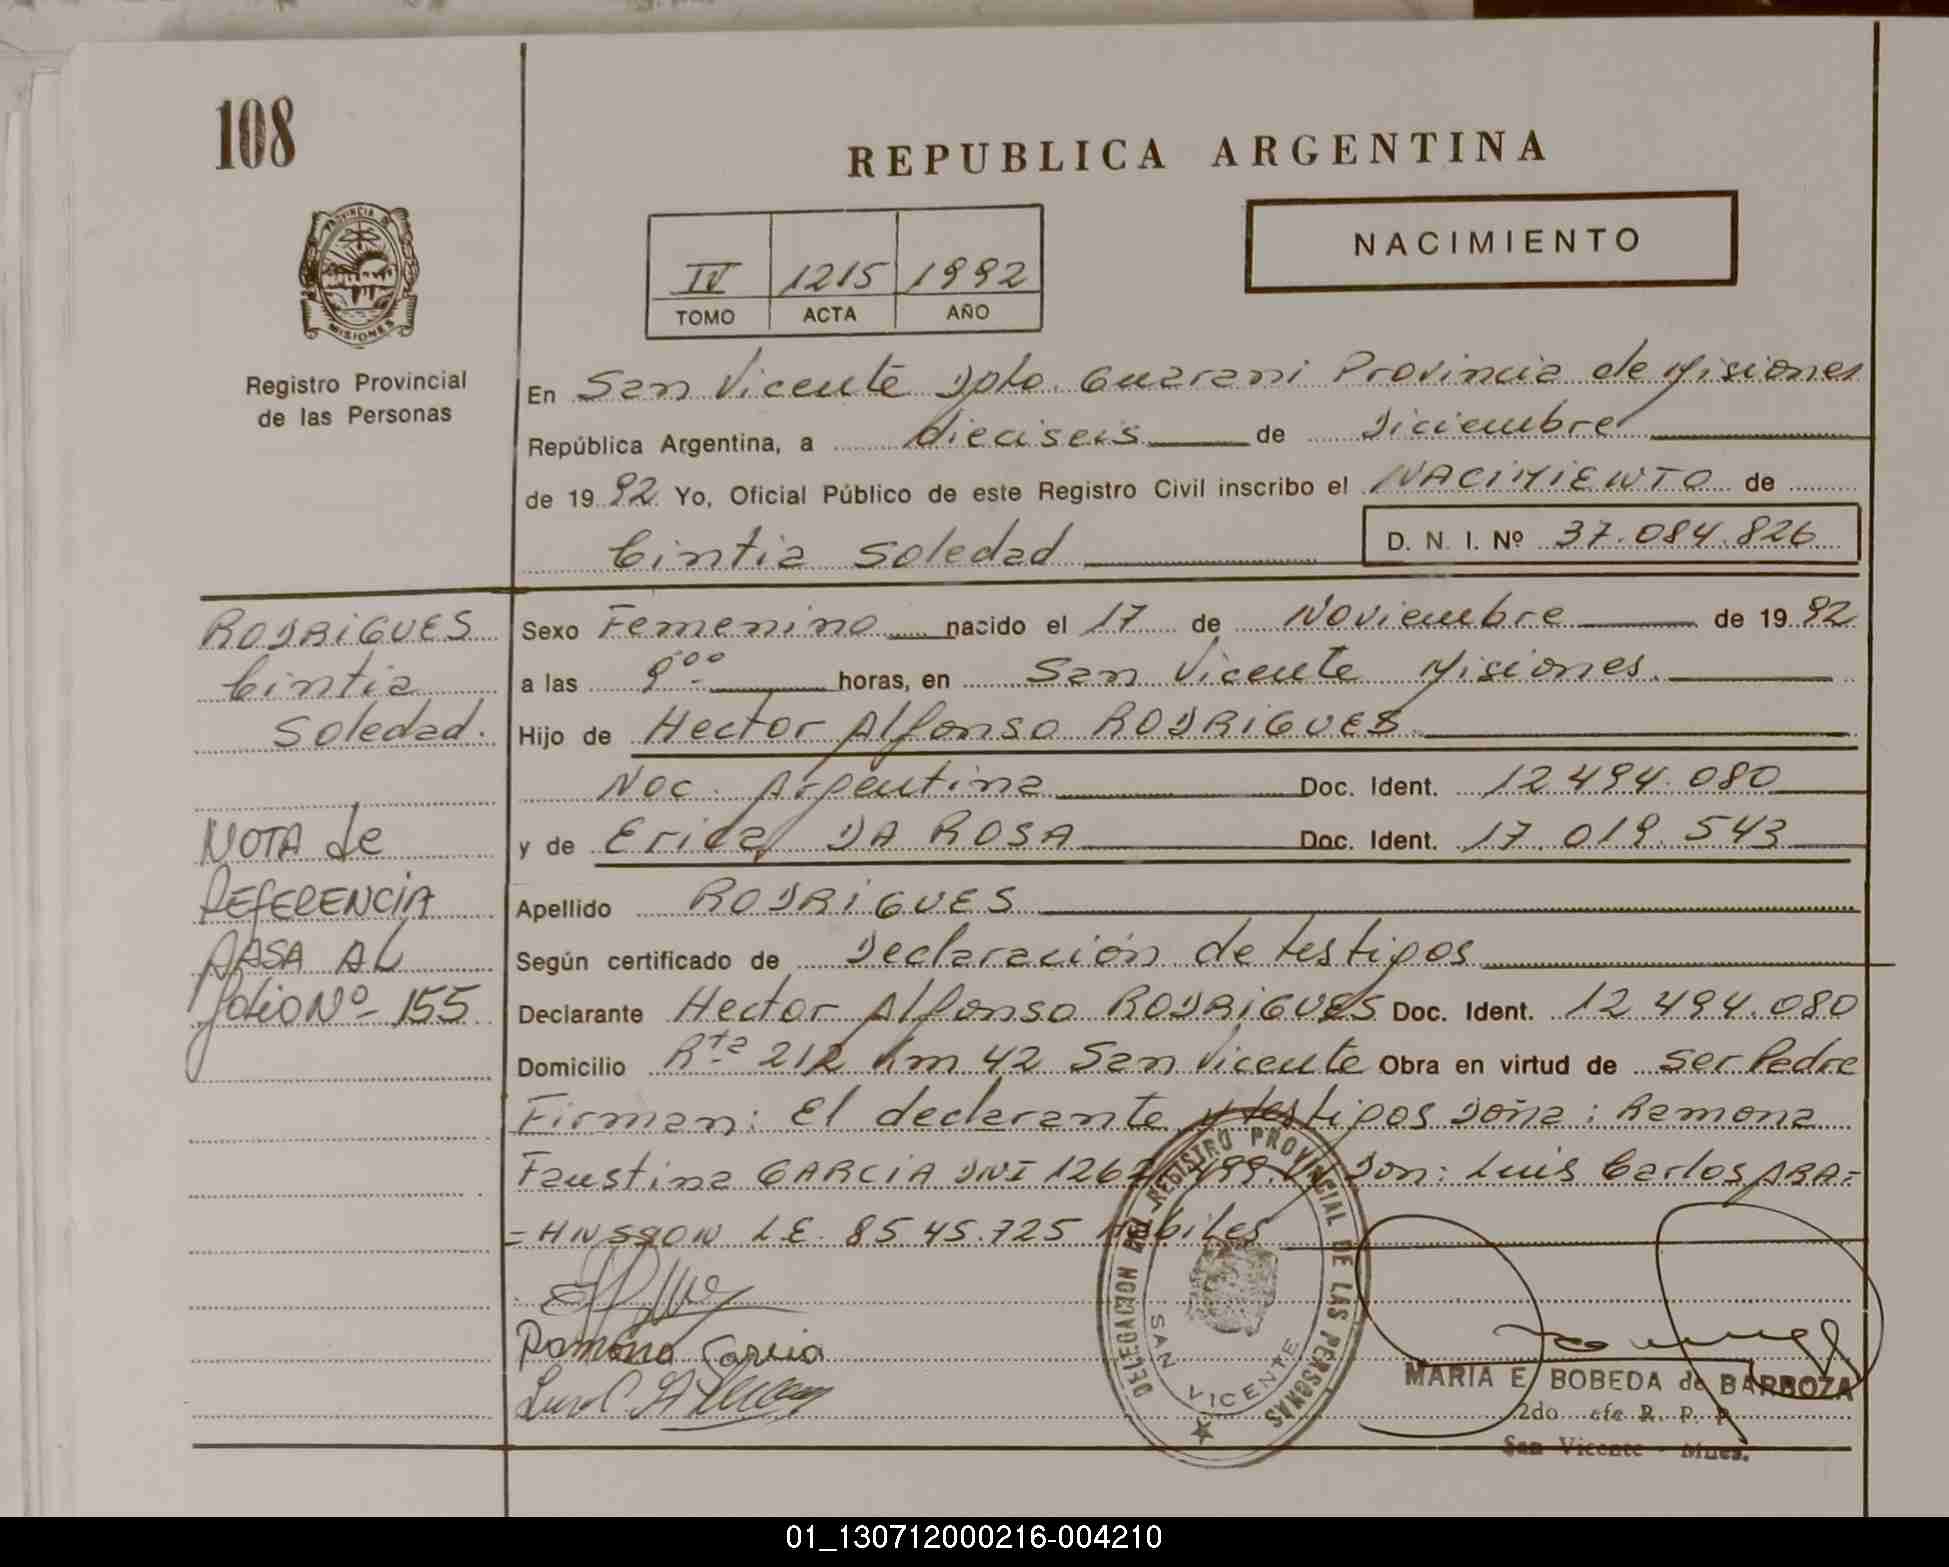 108
REPUBLICA ARGENTINA
PROVINCIA DE
MISIONES
NACIMIENTO
IV 1215 1992
TOMO ACTA AÑO
Registro Provincial
de las Personas
En San Vicente Dpto. Guarani Provincia de Misiones
República Argentina, a dieciseis de Diciembre
de 1992 Yo, Oficial Público de este Registro Civil inscribo el NACIMIENTO de
Cintia Soledad D. N. I. Nº 37.084.826
RODRIGUES
Cintia
Soledad.
NOTA de
REFERENCIA
PASA AL
folio Nº 155
Sexo Femenino nacido el 17 de Noviembre de 1992
a las 9⁰⁰ horas, en San Vicente Misiones.
Hijo de Hector Alfonso RODRIGUES
Nac. Argentina Doc. Ident. 12.494.080
y de Erica DA ROSA Doc. Ident. 17.019.543
Apellido RODRIGUES
Según certificado de Declaración de testigos
Declarante Hector Alfonso RODRIGUES Doc. Ident. 12.494.080
Domicilio Rta 212 Km 42 San Vicente Obra en virtud de ser Padre
Firman: El declarante y testigos Doña: Ramona
Faustina GARCIA DNI Don: Luis Carlos ABA=
=HNSSON L.E. 8545.725 Habiles
Ramona Garcia
DELEGACION DEL REGISTRO PROVINCIAL DE LAS PERSONAS
SAN VICENTE
MARIA E. BOBEDA de BARBOZA
2do. efe R. P. P.
San Vicente - Mnes.
01_130712000216-004210